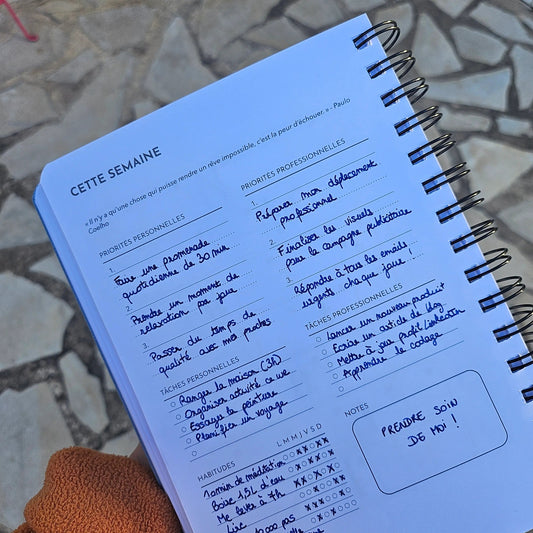 CETTE SEMAINE
« Il n'y a qu'une chose qui puisse rendre un rêve impossible, c'est la peur d'échouer. » - Paulo
Coelho
PRIORITÉS PERSONNELLES
1.
Faire une promenade
quotidienne de 30 min
2.
Prendre un moment de
relaxation par jour
3.
Passer du temps de
qualité avec mes proches
TÂCHES PERSONNELLES
Ranger la maison
Organiser activité ce we
Essayer la peinture
Planifier un voyage
HABITUDES
L M M J V S D
10min de méditation
Boire 1,5L d'eau
Me lever à 7h
Lire
10000 pas
PRIORITÉS PROFESSIONNELLES
1.
Préparer mon déplacement
professionnel
2.
Finaliser les visuels
pour la campagne publicitaire
3.
Répondre à tous les emails
urgents chaque jour !
TÂCHES PROFESSIONNELLES
Lancer un nouveau produit
Ecrire un article de blog
Mettre à jour profil LinkedIn
Apprendre le codage
NOTES
PRENDRE SOIN
DE MOI !